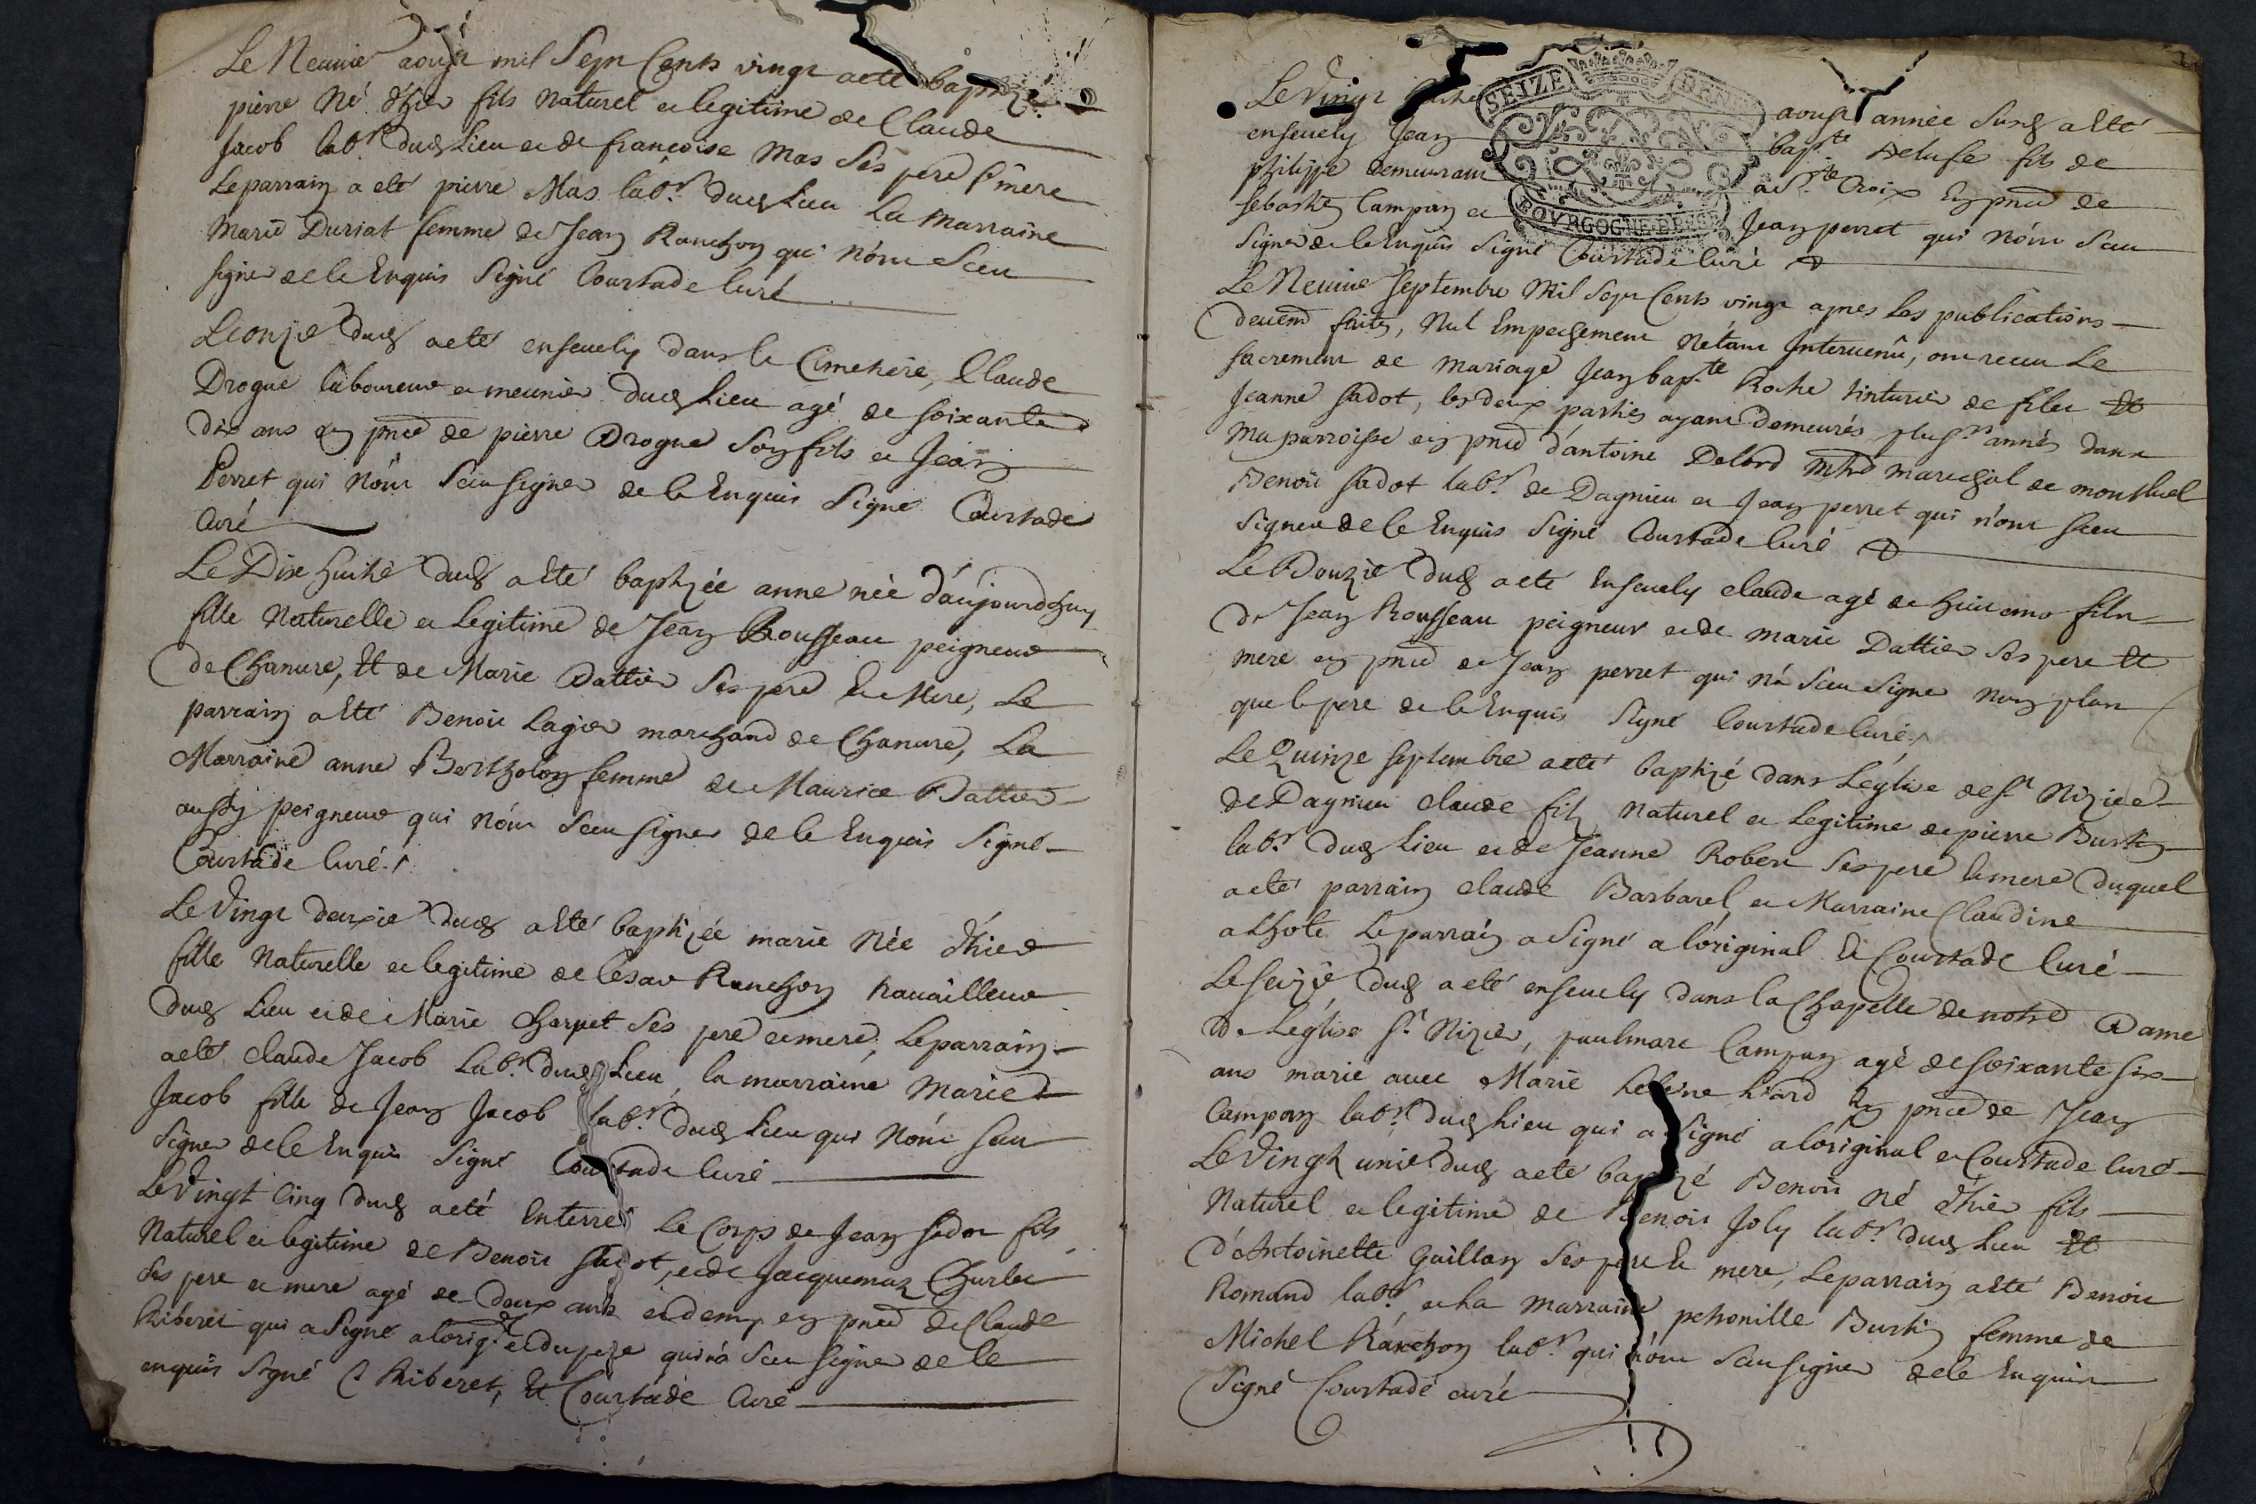 Le Neuvie aoust mil Sept Cents vingt a eté baptizé
pierre Né d'hier fils Naturel et legitime de Claude
Jacob lab.r dud Lieu et de françoise Mas Ses pere & mere
Le parrain a eté pierre Mas lab.r dud Lieu La Marraine
Marie Duriat femme de Jean Ranchon qui n'ont Sceu
signer de le Enquis Signé Courtade Curé
Le onzie dud a eté enseuely dans le Cimetiere, Claude
Drogue laboureur et meunier dud Lieu agé de soixante
dix ans en pnce de pierre Drogue Son fils et Jean
Perret qui n'ont Sceu signer de le Enquis Signé Courtade
Curé
Le Dix huitie dud a eté baptizée anne née d'aujourdhuy
fille Naturelle et Legitime de Jean Rousseau peigneur
de Chanvre, Et de Marie Dattier Ses pere Et Mere, Le
parrain a eté Benoit Lager marchand de Chanvre, La
Marraine anne Bertholon femme de Maurice Dattier
aussy peigneur qui n'ont Sceu signer de le Enquis Signé
Courtade Curé.
Le Vingt deuxie dud a eté baptizée marie Née d'hier
fille Naturelle et legitime de Cesar Ranchon travailleur
dud Lieu et de Marie Charpet Ses pere et mere, Le parrain
a eté Claude Jacob Lab.r dud Lieu, la marraine Marie
Jacob fille de Jean Jacob lab.r dud Lieu qui n'ont sceu
Signer de le Enquis Signé Courtade Curé
Le Vingt Cinq dud a eté Enterré Le Corps de Jean Sadot fils
Naturel et legitime de Benoit Sadot, et de Jacquemaz Charles
Ses pere et mere agé de deux ans et demy en pnce de Claude
Riberet qui a Signé a l'orig.al et du pere qui n'a Sceu signer de le
enquis Signé C Riberet, Et Courtade Curé
SEIZE DEN
BOVRGOGNE BRESSE
Le Vingt aoust année Susd a Eté
enseuely Jean bapt.te Deluse fils de
philippe demeurant a S.te Croix En pnce de
Sebastien Campan et Jean perret qui n'ont Sceu
Signer de le Enquis Signé Courtade Curé
Le Neuvie Septembre Mil Sept Cents vingt apres Les publications
deuemt faites, Nul Empechement N'etant Intervenû, ont receu Le
Sacrement de Mariage Jean bap.te Roche tinturier de filet Et
Jeanne Sadot, les deux parties ayant demeurés plus.rs années dans
Ma parroisse en pnce d'antoine Delord M.tre marechal de montluel
Benoit Sadot lab.r de Dagnieu et Jean perret qui n'ont sceu
Signer de le Enquis Signé Courtade Curé
Le Douzie dud a eté Enseuely claude agé de huit ans fils
de Jean Rousseau peigneur et de marie Dattier Ses pere Et
mere en pnce de Jean perret qui n'a Sceu Signer Non plus
que le pere de le Enquis Signé Courtade Curé.
Le Quinze Septembre a eté baptizé dans L'eglise de S.t Nizier
de Dagnieu claude fils Naturel et Legitime de pierre Burtin
lab.r dud Lieu et de Jeanne Robert Ses pere & mere duquel
a eté parrain claude Barbarel et Marraine Claudine
alhote Le parrain a Signé a l'original Et Courtade Curé
Le Seizie dud a eté enseuely dans la Chapelle de notre Dame
de L'eglise S.t Nizier, paul marc Campan agé de soixante six
ans marié avec Marie Liard En pnce de Jean
Campan lab.r dud Lieu qui a Signé a l'original et Courtade Curé
Le Vingt unie dud a eté baptizé Benoit Né d'hier fils
Naturel et legitime de Benoit Joly lab.r dud Lieu Et
d'antoinette Guillon Ses pere Et mere, Le parrain a eté Benoit
Romand lab.r, et La marraine petronille Burtin femme de
Michel Ranchon lab.r qui n'ont Sceu signer de le Enquis
Signé Courtade curé